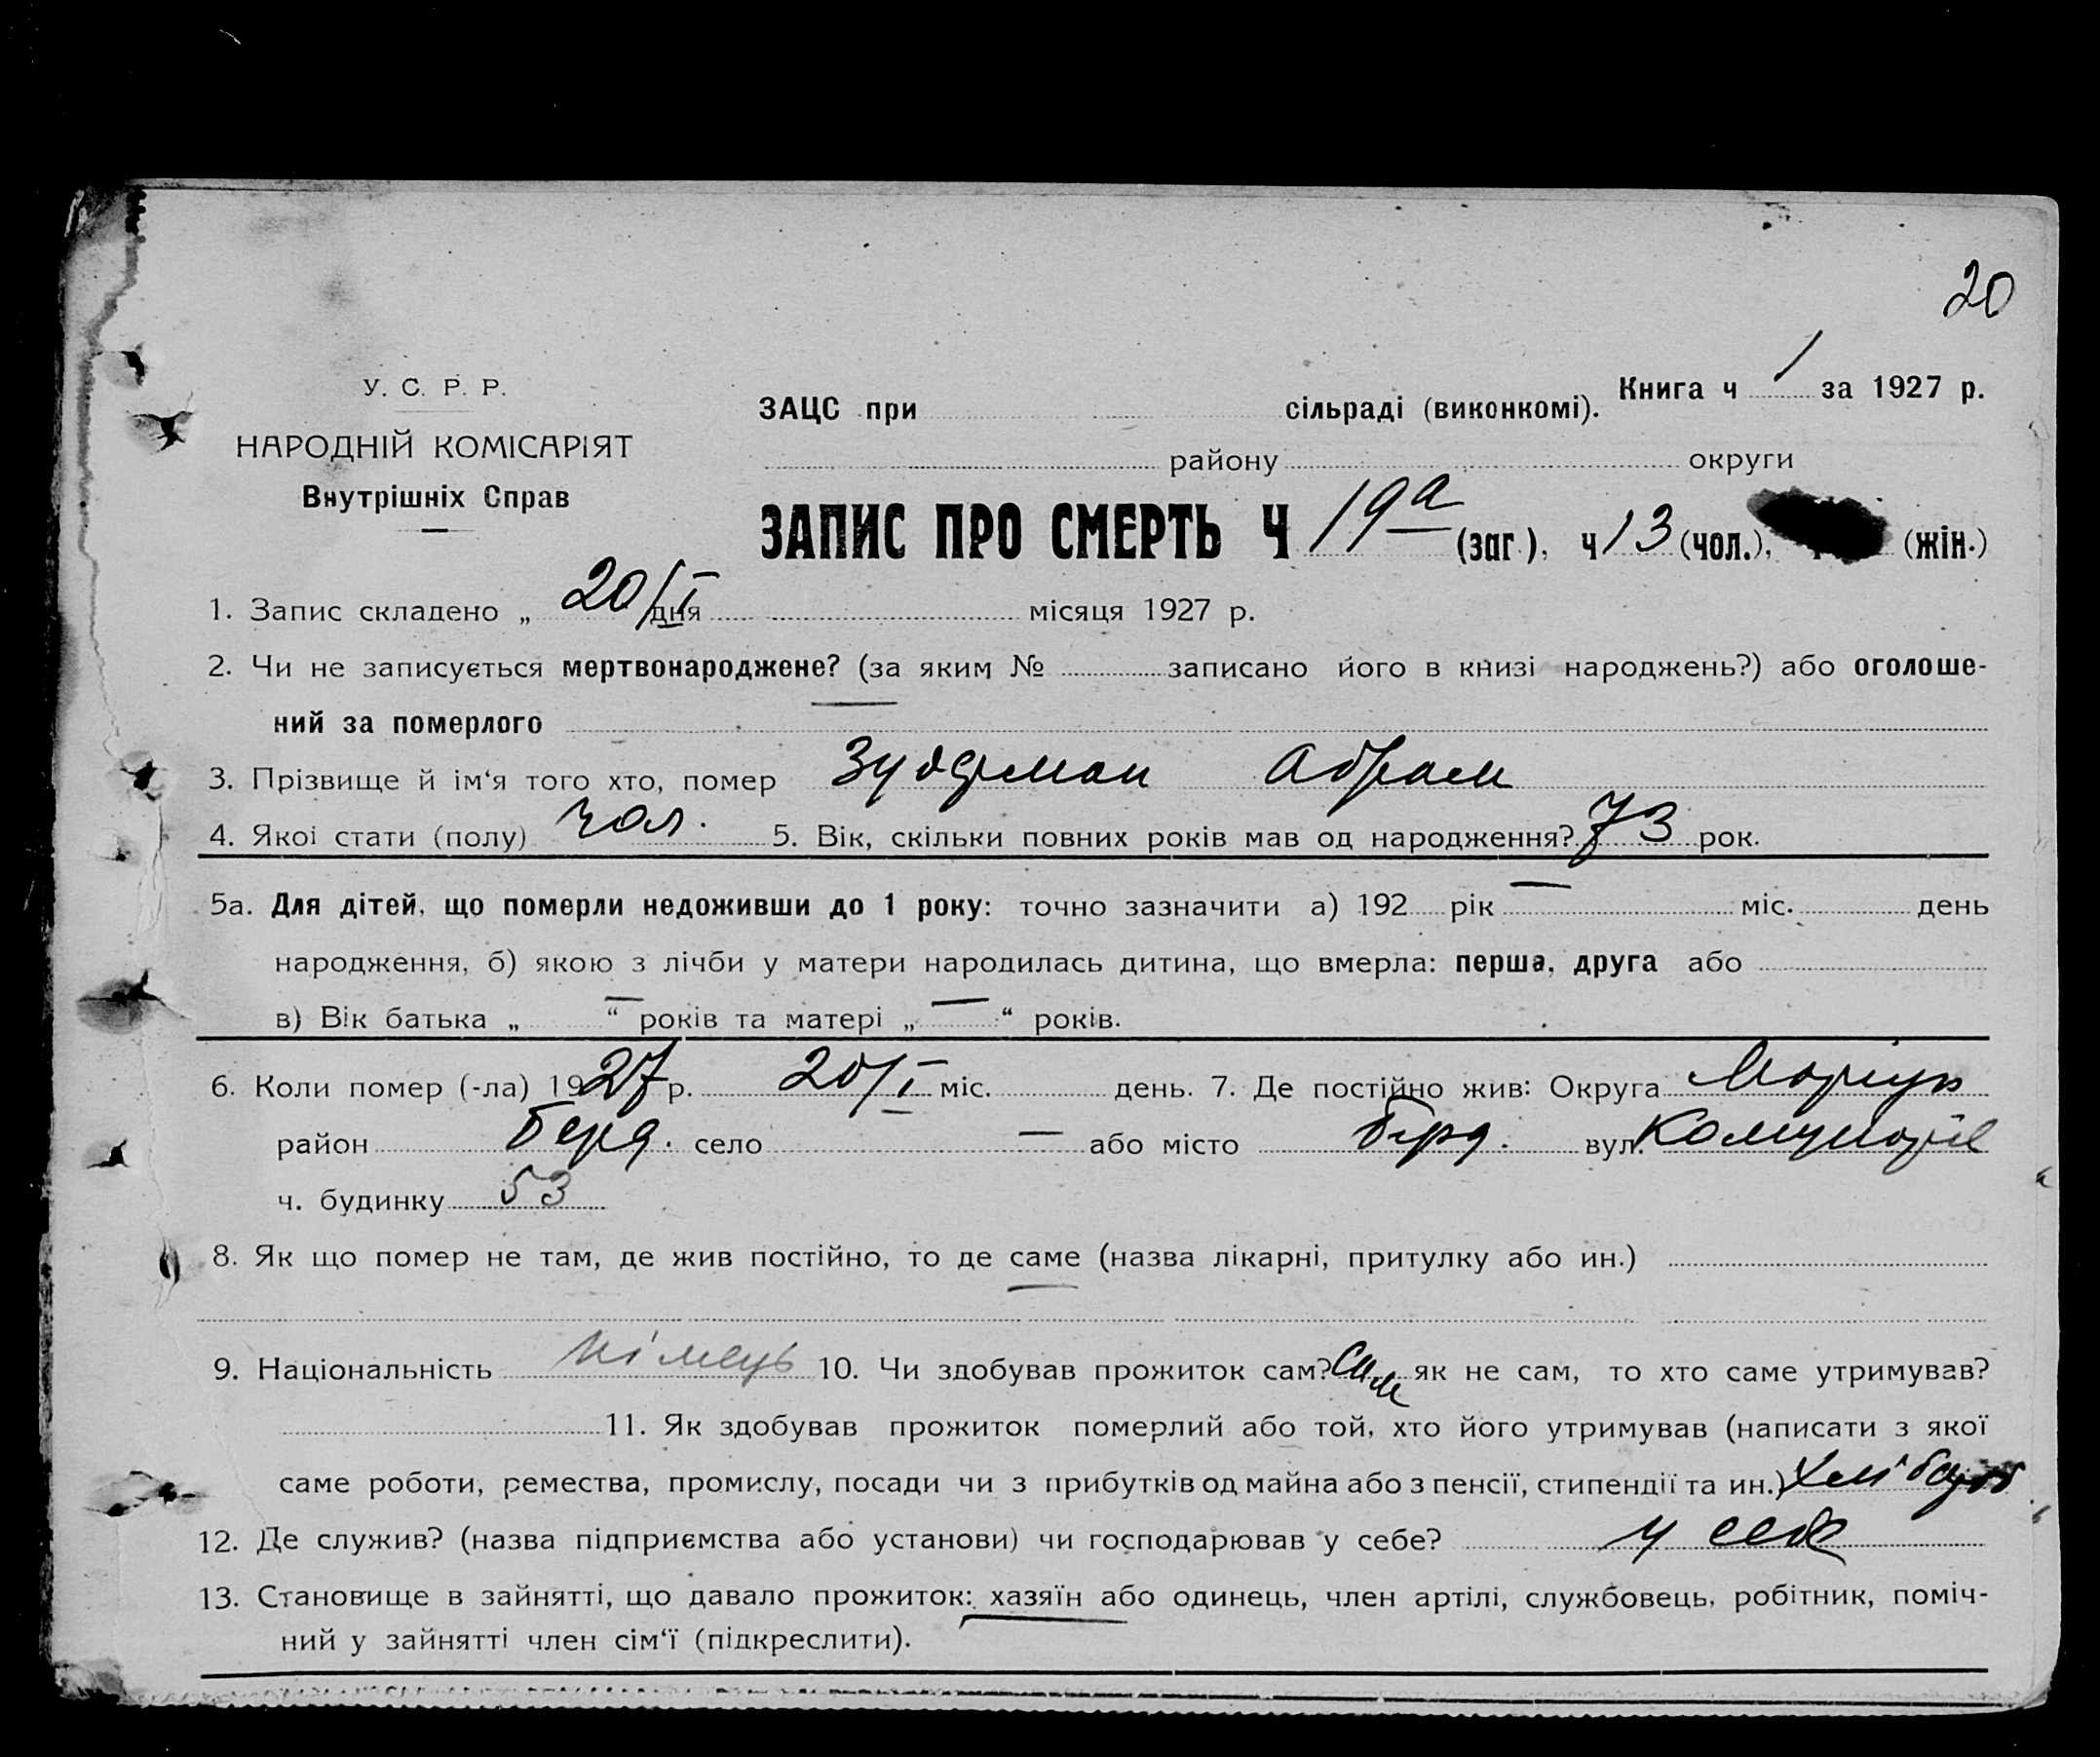 20
У. С. Р. Р.
НАРОДНІЙ КОМІСАРІЯТ
Внутрішніх Справ
ЗАЦС при сільраді (виконкомі). Книга ч 1 за 1927 р.
району округи
ЗАПИС ПРО СМЕРТЬ Ч 19а (заг.), ч 13 (чол.), (жін.)
1. Запис складено „ 20/I дня місяця 1927 р.
2. Чи не записується мертвонароджене? (за яким № записано його в книзі народжень?) або оголоше-
ний за померлого —
3. Прізвище й ім‘я того хто, помер Абрам
4. Якої стати (полу) чол. 5. Вік, скільки повних років мав од народження? 73 рок.
5а. Для дітей, що померли недоживши до 1 року: точно зазначити а) 192 рік — міс. день
народження, б) якою з лічби у матери народилась дитина, що вмерла: перша, друга або
в) Вік батька „ — “ років та матері „ — “ років.
6. Коли помер (-ла) 1927 р. 20/I міс. день. 7. Де постійно жив: Округа Маріуп
район Берд. село — або місто Берд. вул.
ч. будинку 53
8. Як що помер не там, де жив постійно, то де саме (назва лікарні, притулку або ин.)
—
9. Національність німець 10. Чи здобував прожиток сам? сам як не сам, то хто саме утримував?
11. Як здобував прожиток померлий або той, хто його утримував (написати з якої
саме роботи, ремества, промислу, посади чи з прибутків од майна або з пенсії, стипендії та ин.) хлібороб
12. Де служив? (назва підприємства або установи) чи господарював у себе? у себе
13. Становище в зайнятті, що давало прожиток: хазяїн або одинець, член артілі, службовець, робітник, поміч-
ний у зайнятті член сім‘ї (підкреслити).